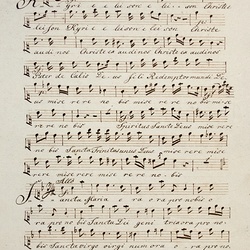 Kyri e e lei son e lei son Christe
leison Kyri e e leison e lei son Christe
audi nos Christe ex audi nos Christe ex audi nos
Pater de Celis Deus fili Redemptor mundi De
us mise rere no bis mise rere no bis mise rere
re re no bis Spiritus Sancte Deus mise rere
no bis Sancta Trinitas unus Deus mise rere mise
rere mise rere mise re re no bis
Allo
Sancta Maria o ra o ra pro nobis o
ra pro no bis Sancta Dei geni trix ora pro no
bis Sancta virgo virgi num ora o ra pro no